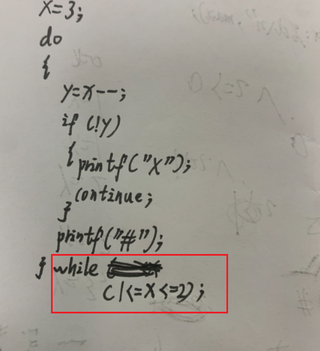 x=3;
do
{
y=x--;
if (!y)
{ printf("x");
continue;
}
printf("#");
} while
(1<=x<=2);